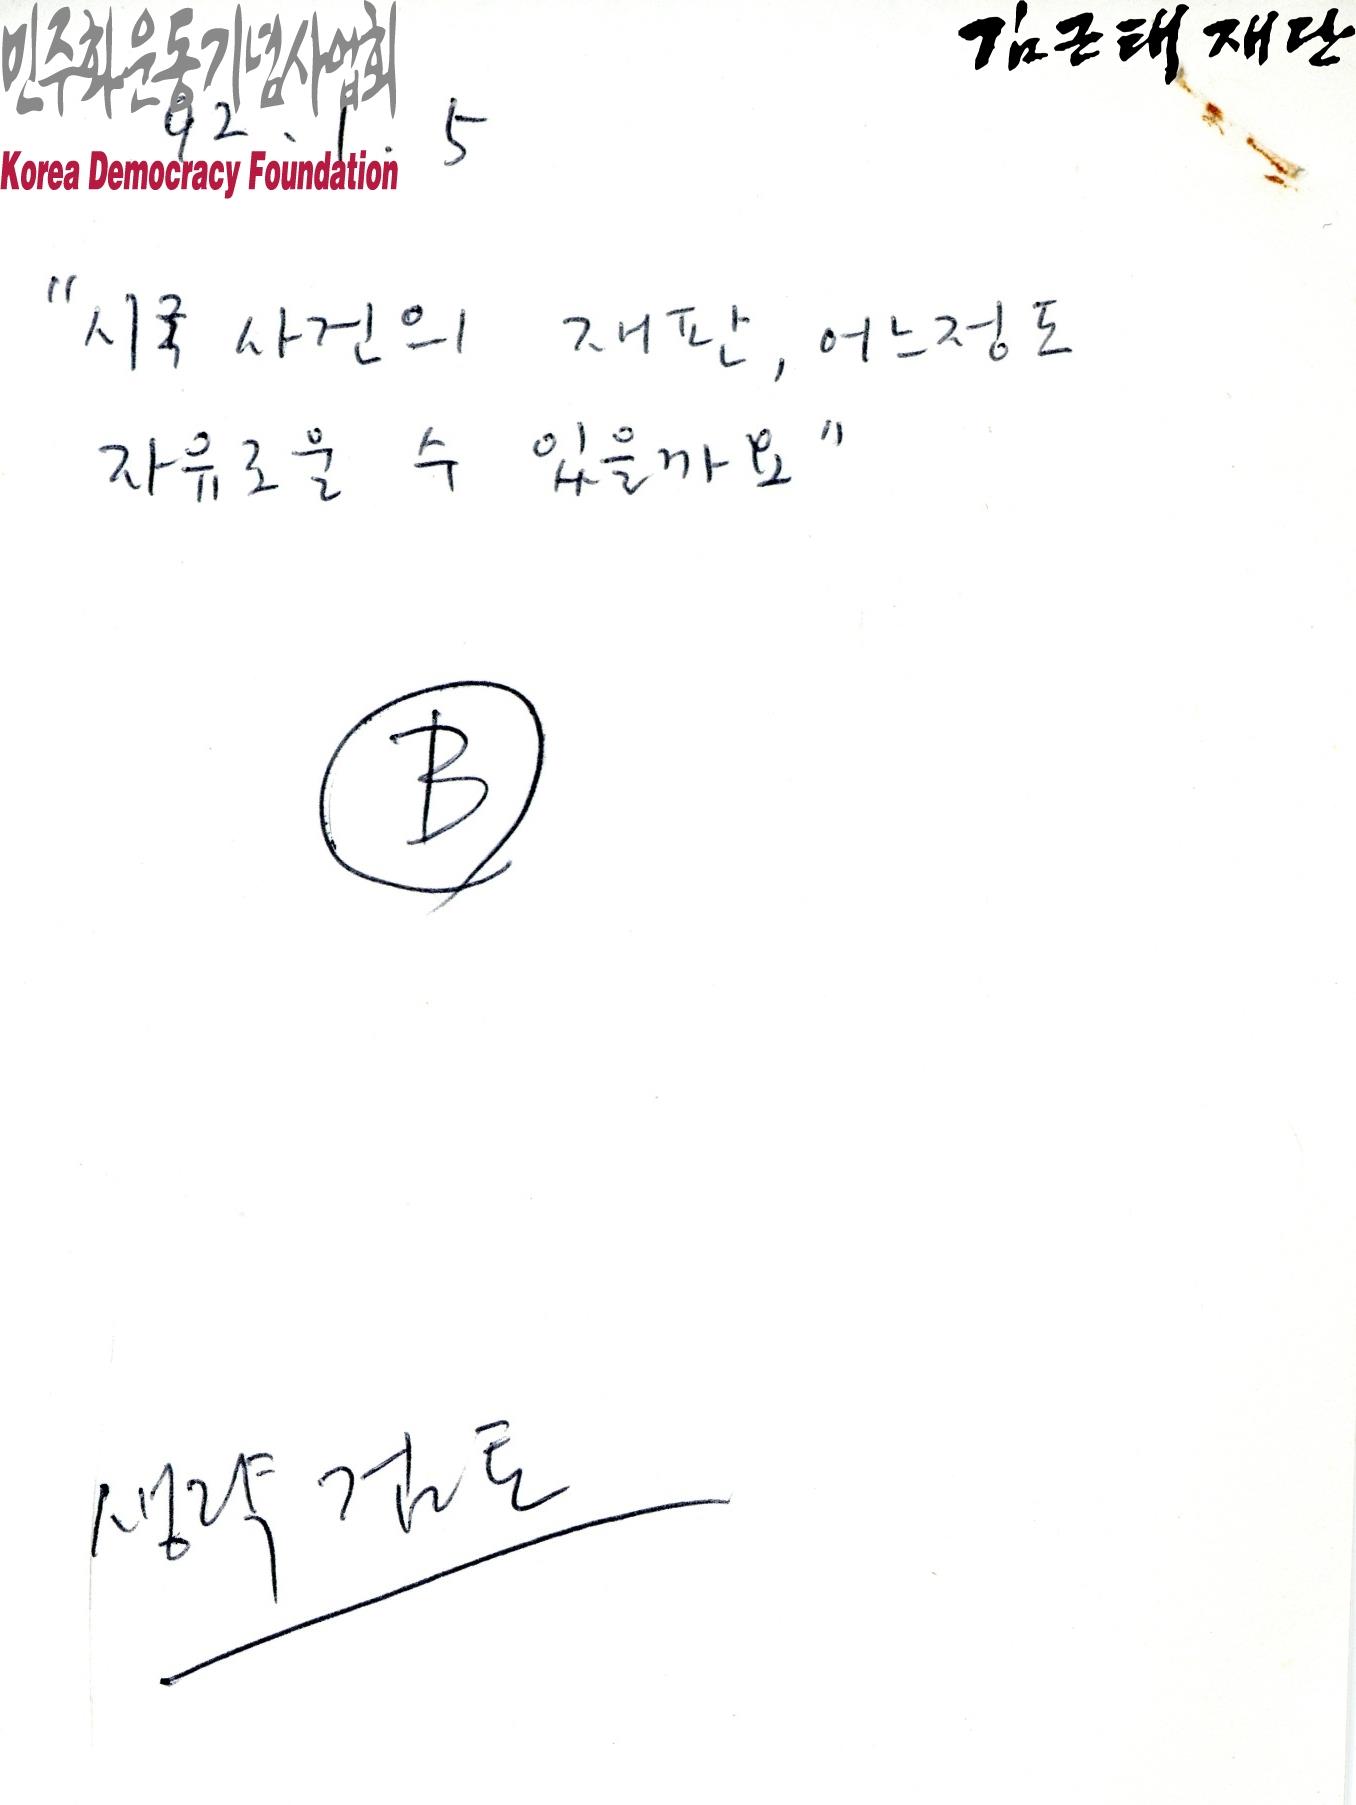 민주화운동기념사업회
김근태재단
92. 1. 5
Korea Democracy Foundation
"시국 사건의 재판, 어느정도
자유로울 수 있을까요"
B
생략 검토